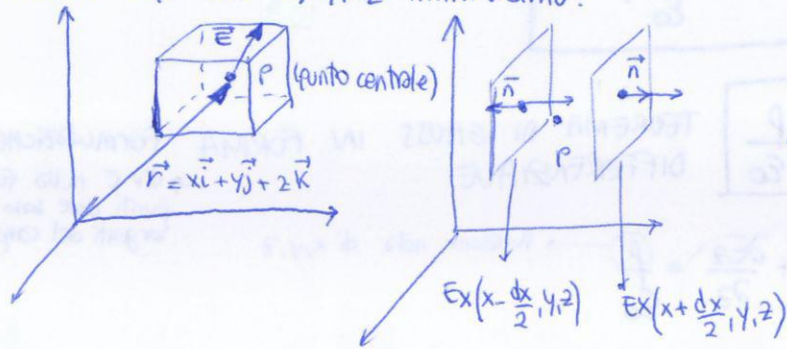 E⃗
P (punto centrale)
r⃗ = xi⃗ + yj⃗ + zk⃗
n⃗
n⃗
P
Ex(x - dx/2, y, z)
Ex(x + dx/2, y, z)